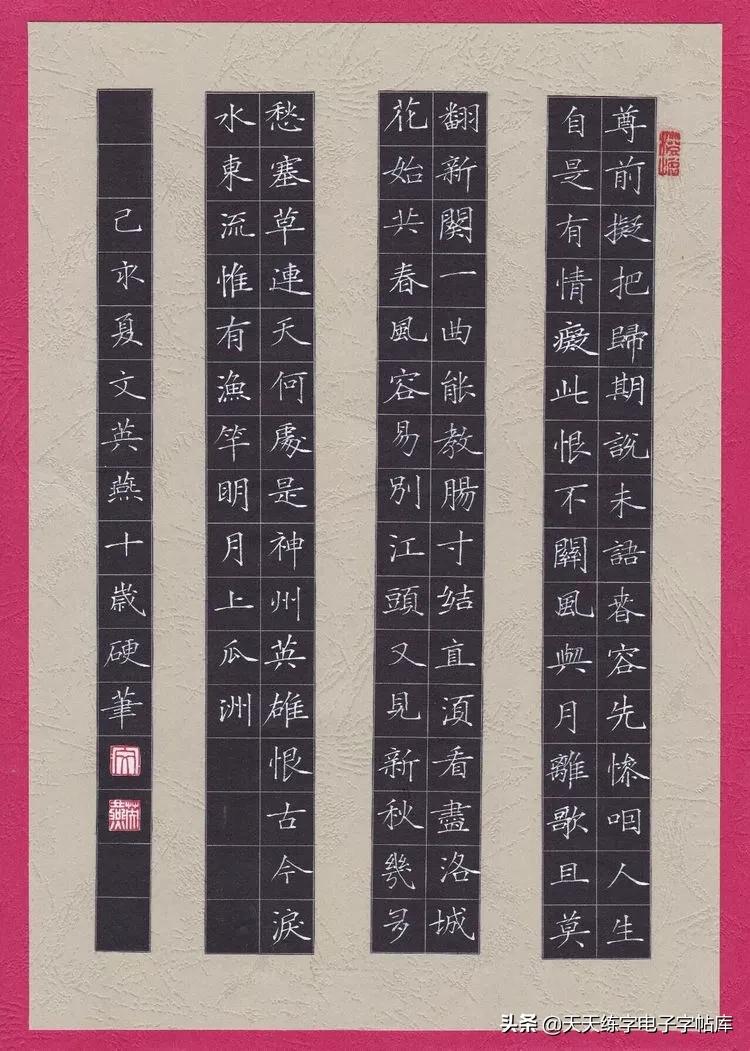 尊前擬把歸期說未語春容先慘咽人生
自是有情癡此恨不關風與月離歌且莫
翻新闋一曲能教腸寸结直須看盡洛城
花始共春風容易別江頭又見新秋幾多
愁塞草連天何處是神州英雄恨古今淚
水東流惟有漁竿明月上瓜洲
己亥夏文英燕十歲硬筆
英燕
头条 @天天练字电子字帖库